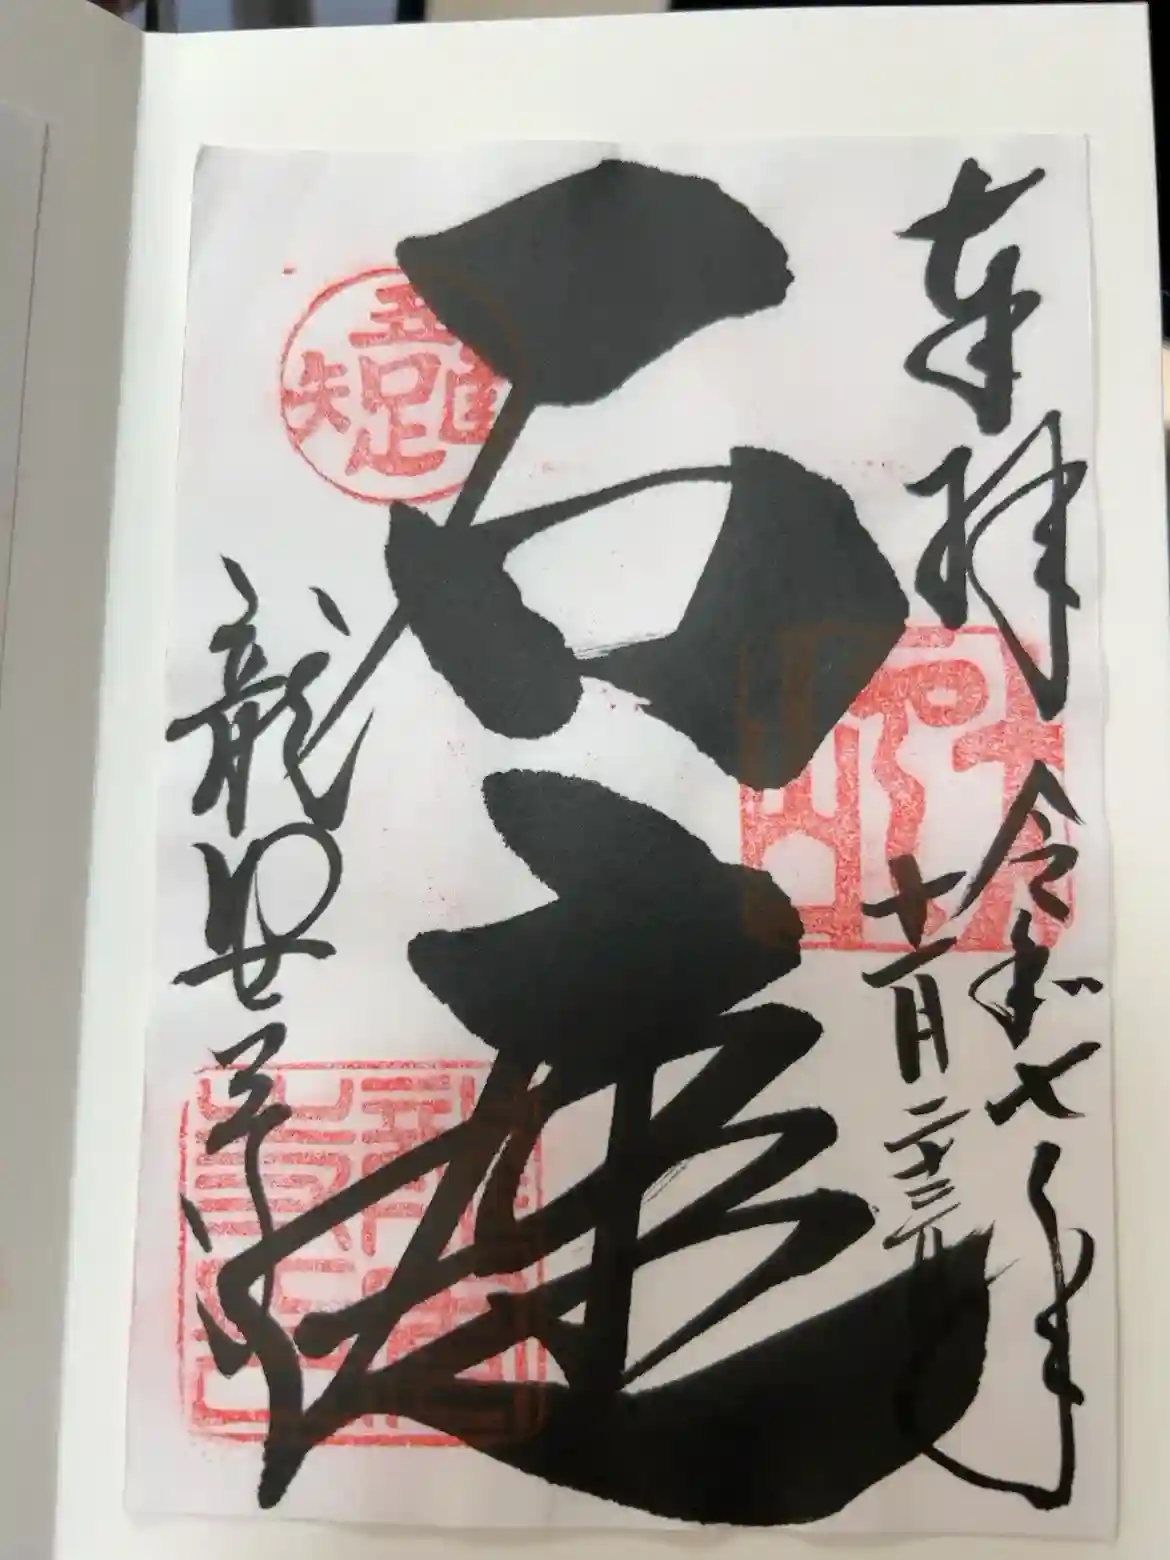 奉拝
令和七年
十一月二十三日
石庭
吾唯足知
龍安寺